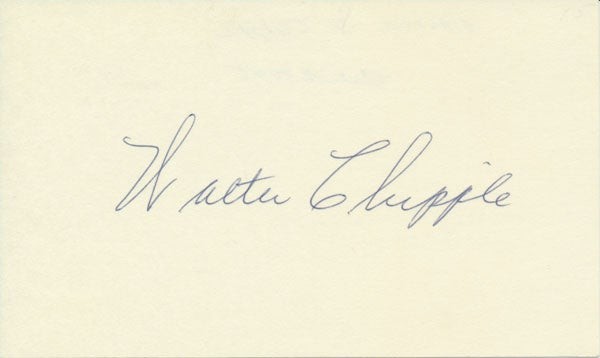 Walter Chipple